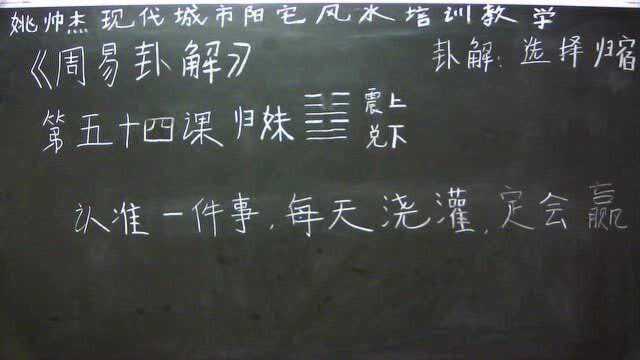 姚帅杰现代城市阳宅风水培训教学
《周易卦解》 卦解:选择归宿
第五十四课 归妹 震上
兑下
认准一件事,每天浇灌,定会赢